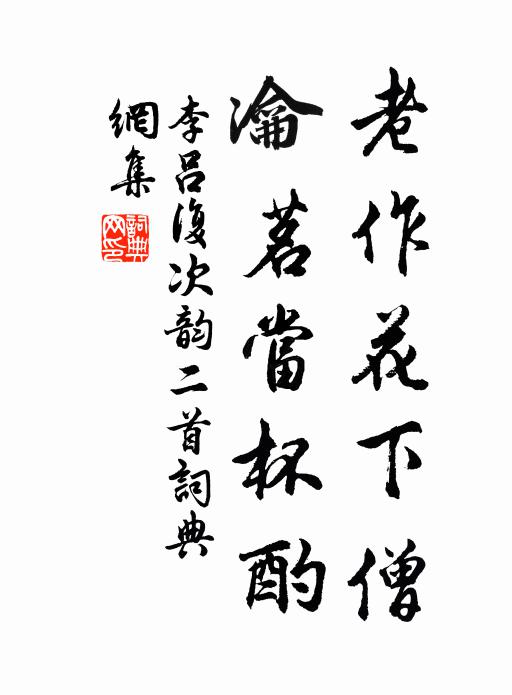 老作花下僧
瀹茗當杯酌
李呂復次韵二首詞典
網集
詞典
网印